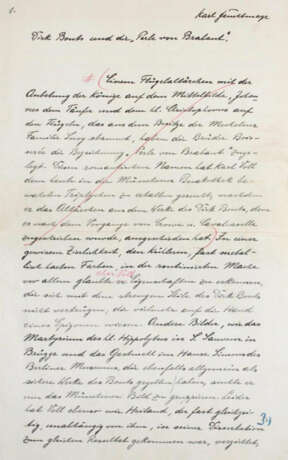 1.
Karl Feuchtmayr
Dirk Bouts und die „Perle von Brabant“.
Einem Flügelaltärchen mit der
Anbetung der Könige auf dem Mittelbilde, Johan-
nes dem Täufer und dem hl. Christophorus auf
den Flügeln, das aus dem Besitze der Mechelner
Familie Snoy stammt, haben die Brüder Bois-
serée die Bezeichnung „Perle von Brabant“ beige-
legt. Diesen romantischen Namen hat Karl Voll
dem heute in der Münchner Pinakothek be-
wahrten Triptychon zu erhalten gesucht, nachdem
er das Altärchen aus dem Werke des Dirk Bouts, dem
es nach dem Vorgange von Crowe u. Cavalcaselle
zugeschrieben wurde, ausgeschieden hat. In einer
gewissen Zierlichkeit, den kühleren, fast metal-
lisch harten Farben, in der
vor allem glaubte er Eigenschaften zu erkennen,
die sich mit dem strengen Stile des Dirk Bouts
nicht vertrügen, die vielmehr auf die Hand
eines Epigonen wiesen. Andere Bilder, wie das
Martyrium des hl. Hippolytus in S. Sauveur in
Brügge und das Gastmahl im Hause Simons des
Berliner Museums, die ebenfalls allgemein als
sichere Werke des Bouts gegolten haben, suchte er
um das Münchner Bild zu gruppieren. Leider
hat Voll ebenso wie Heiland, der fast gleichzei-
tig, unabhängig von ihm, in seiner Dissertation
zum gleichen Resultat gekommen war, verzichtet,